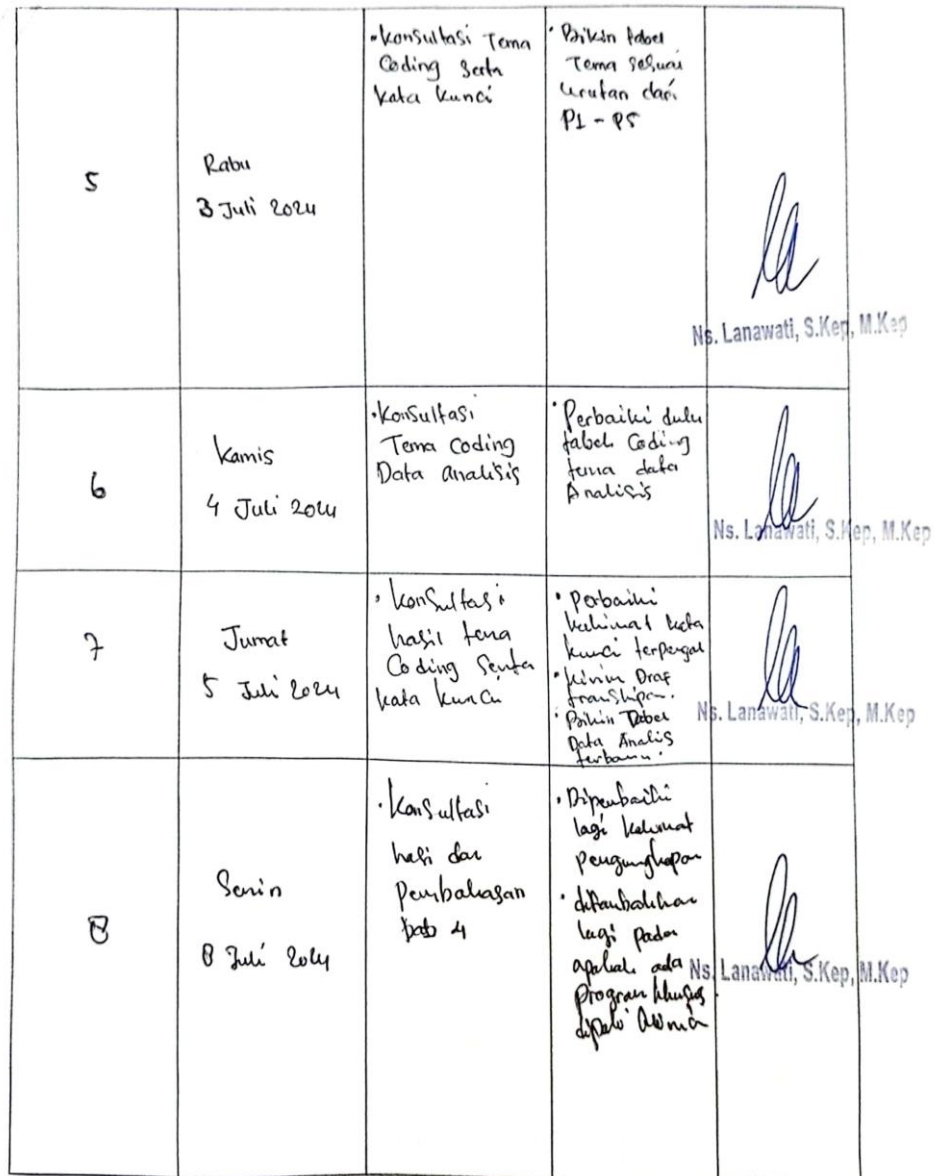 5
Rabu
3 Juli 2024
• Konsultasi Tema
Coding Serta
Kata Kunci
• Bikin tabel
Tema sesuai
urutan dari
P1 - P5
Ns. Lanawati, S.Kep, M.Kep
6
Kamis
4 Juli 2024
• Konsultasi
Tema Coding
Data analisis
• Perbaiki dulu
tabel Coding
tema data
Analisis
Ns. Lanawati, S.Kep, M.Kep
7
Jumat
5 Juli 2024
• Konsultasi
hasil tema
Coding Serta
kata kunci
• Perbaiki
kalimat kata
kunci
• Kirim Draf
• Bikin Tabel
Data Analis
terbaru.
Ns. Lanawati, S.Kep, M.Kep
8
Senin
8 Juli 2024
• Konsultasi
hasi dan
Pembahasan
bab 4
• Diperbaiki
lagi kalimat
pengungkapan
• ditambahkan
lagi pada
apakah ada
program khusus
Ns. Lanawati, S.Kep, M.Kep